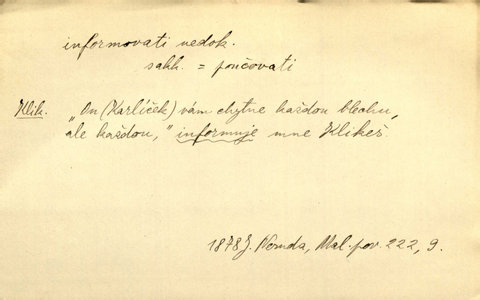 informovati nedok.
sakk. = poučovati
Klik. „On (Karlíček) vám chytne každou blechu,
ale každou," informuje mne Klikeš.
1878 J. Neruda, Mal. pov. 222, 9.